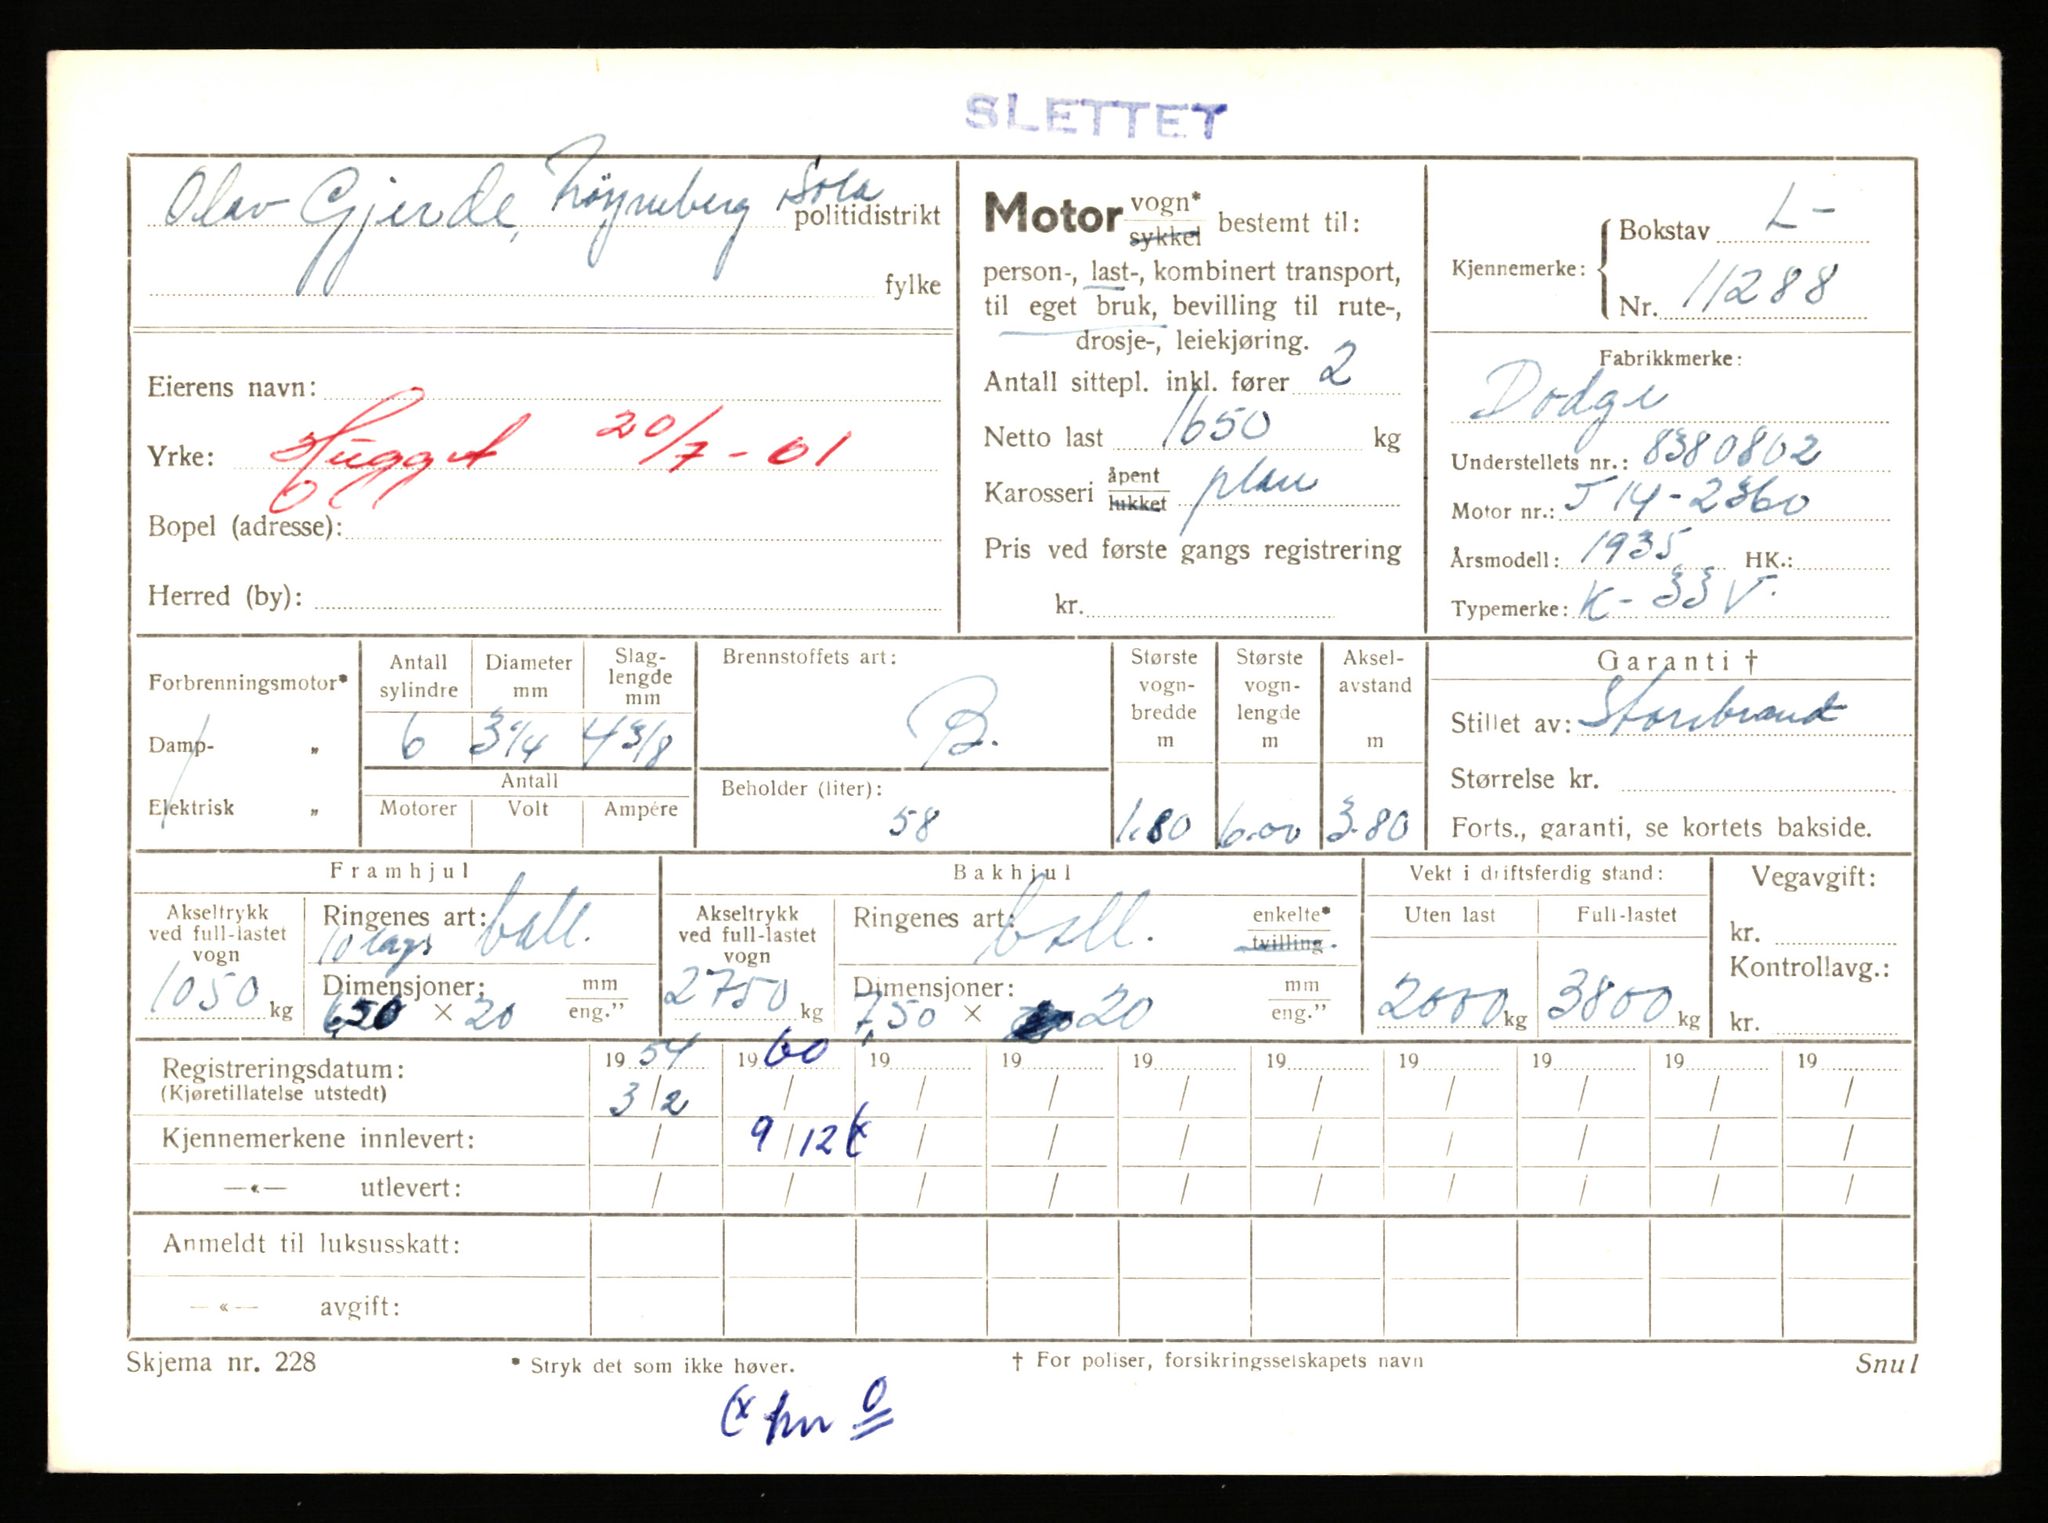 SLETTET
Olav Gjerde, Røyneberg Sola
politidistrikt
fylke
Eierens navn:
Yrke: Hugget 20/7-01
Bopel (adresse):
Herred (by):
Motor vogn* sykkel bestemt til:
person-, last-, kombinert transport,
til eget bruk, bevilling til rute-,
drosje-, leiekjøring.
Antall sittepl. inkl. fører 2
Netto last 1650 kg
Karosseri åpent lukket plan
Pris ved første gangs registrering
kr.
Kjennemerke: { Bokstav L-
Nr. 11288
Fabrikkmerke:
Dodge
Understellets nr.: 8380802
Motor nr.: T 14-2360
Årsmodell: 1935 HK.:
Typemerke: K-33V.
Forbrenningsmotor*
Damp- „
Elektrisk „
Antall sylindre
6
Diameter mm
3 1/4
Slag-lengde mm
4 3/8
Antall
Motorer Volt Ampére
Brennstoffets art:
B.
Beholder (liter):
58
Største vogn-bredde m
1.80
Største vogn-lengde m
6.00
Aksel-avstand m
3.80
Garanti †
Stillet av: Storebrand
Størrelse kr.
Forts., garanti, se kortets bakside.
Framhjul
Akseltrykk ved full-lastet vogn
1050 kg
Ringenes art: ball.
10 lags
Dimensjoner: mm eng."
6,50 × 20
Bakhjul
Akseltrykk ved full-lastet vogn
2750 kg
Ringenes art: ball. enkelte* tvilling
Dimensjoner: mm eng."
7,50 × 20
Vekt i driftsferdig stand:
Uten last Full-lastet
2000 kg 3800 kg
Vegavgift:
kr.
Kontrollavg.:
kr.
Registreringsdatum: 1954 1960 19 19 19 19 19 19 19 19
(Kjøretillatelse utstedt) 3/2 / / / / / / / / /
Kjennemerkene innlevert: / 9/12 (x / / / / / / / /
—«— utlevert: / / / / / / / / / /
Anmeldt til luksusskatt:
—«— avgift:
Skjema nr. 228 * Stryk det som ikke høver. † For poliser, forsikringsselskapets navn Snul
(x